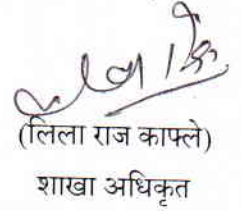 (लिला राज काफ्ले)
शाखा अधिकृत